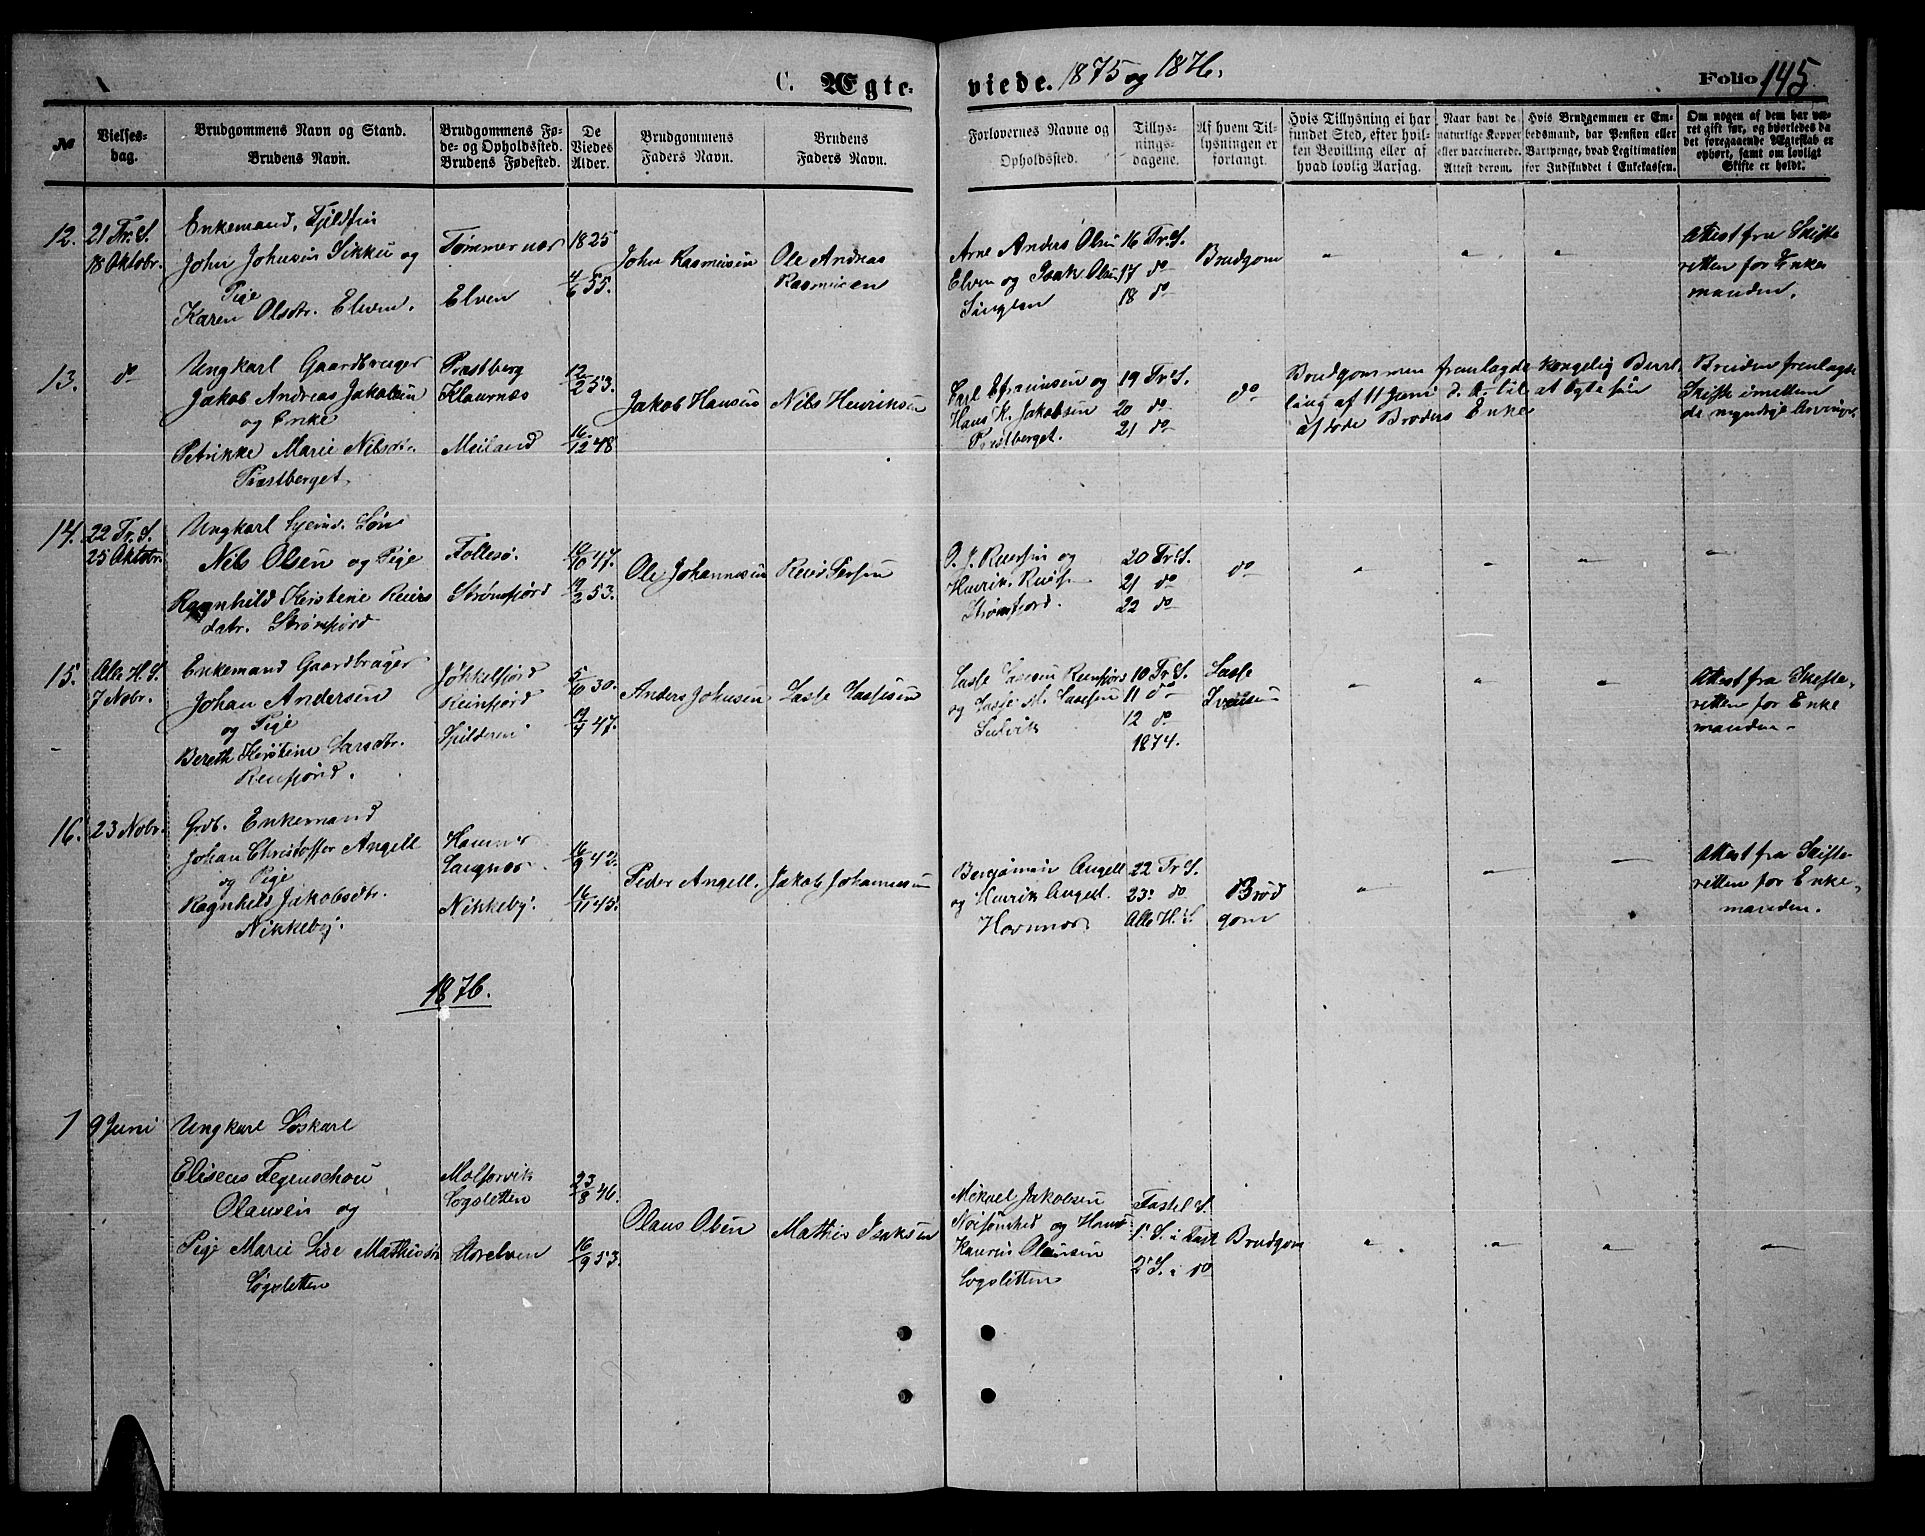 C. Ægteviede. 1875 og 1876.
Folio 145
№
Vielsesdag.
Brudgommens Navn og Stand.
Brudens Navn.
Brudgommens Føde- og Opholdssted.
Brudens Fødested.
De Viedes Alder.
Brudgommens Faders Navn.
Brudens Faders Navn.
Forlovernes Navne og Opholdssted.
Tillysningsdagene.
Af hvem Tillysningen er forlangt.
Hvis Tillysning ei har fundet Sted, efter hvilken Bevilling eller af hvad lovlig Aarsag.
Naar havt de naturlige Kopper eller vaccinerede. Attest derom.
Hvis Brudgommen er Embedsmand, bør Pension eller Vartpenge, hvad Legitimation for Indskuddet i Enkekassen.
Om nogen af dem har været gift før, og hvorledes da det foregaaende Ægteskab er ophørt, samt om lovligt Skifte er holdt.
12. 21 Tr. S.
18 Oktobr.
Enkemand,
John Johnsen Sikku og
Pige
Karen Olsdtr. Elven.
Elven
1825
4/6 55.
John Rasmusen
Ole Andreas
Rasmusen
Arne Anders Olsen
Elven og Isak Olsen
16 Tr. S.
17 do
18 do
Brudgom
Attest fra Skifte
retten for Enke
manden.
13. do
Ungkarl Gaardbruger
Jakob Andreas Jakobsen
og Enke
Petrikke Marie Nilsdtr.
Præstberget
Præstberg
Klaurnæs
Meiland
12/2 53.
16/12 48
Jakob Hansen
Nils Henriksen
Carl Efraimsen og
Hans K. Jakobsen
Præstberget.
19 Tr. S.
20 do
21 do
do
Brudgommen fremlagde kongelig Bevil
ling af 11 Juni d. A. til at ægte sin
afdøde Broders Enke
Bruden fremlagde
Skifte imellem
de myndige Arvinger
14. 22 Tr. S.
25 Oktobr.
Ungkarl
Nils Olsen og Pige
Ragnhild Kerstine Reiers
datr. Strømfjord
Follesø.
Strømfjord
10/10 47.
19/2 53.
Ole Johannesen
Reier Persen
O. J. Reiersen og
Henrik Reiers.
Strømfjord.
20 Tr. S.
21 do
22 do
do
15. Alle H. S.
7 Nobr.
Enkemand Gaardbruger
Johan Andersen
og Pige
Bereth Kirstine Larsdtr.
Reinfjord.
Jøkkelfjord
Reinfjord
Spilderen
5/10 30.
12/4 47.
Anders Johnsen
Lasse Lassesen
Lasse Lassesen Reinfjord
og Lasse M. Lassesen
10 Tr. S.
11 do
12 do
1874.
Lasse
Attest fra Skifte-
retten for Enke
manden.
16. 23 Nobr.
Grdb. Enkemand
Johan Christoffer Angell
og Pige
Ragnhild Jakobsdtr.
Nikkeby.
Havnnæs
Laugnæs
Nikkeby.
16/9 42.
16/11 45.
Peder Angell.
Jakob Johannesen
Benjamin Angell
og Henrik Angell.
Havnnæs
22 Tr. S.
23. do
Alle H. S.
Brud
gom
Attest fra Skifte
retten for Enke-
manden.
1876.
1 9 Juni
Ungkarl Løskarl
Eliseus Fegenschou
Olausen og
Pige Marie Lide Mathisdtr.
Logsletten
Molfarvik
Logsletten
Storelven
23/8 46.
16/9 53.
Olaus Olsen
Mathis Isaksen
Mikael Jakobsen
og Hans
Olausen
Logsletten
Fastel. S.
1. S. i Fast
2. S. i do
Brudgom